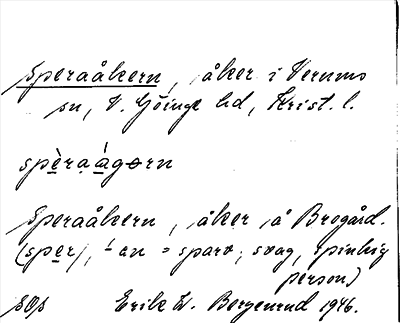 Speraåkern, åker i Verums
sn, V. Göinge hd, Krist. l.
spèraágorn
Speraåkern, åker å Brogård.
(sper), -an = sparv; svag, spinkig
person)
Erik W. Bergenrud 1946.